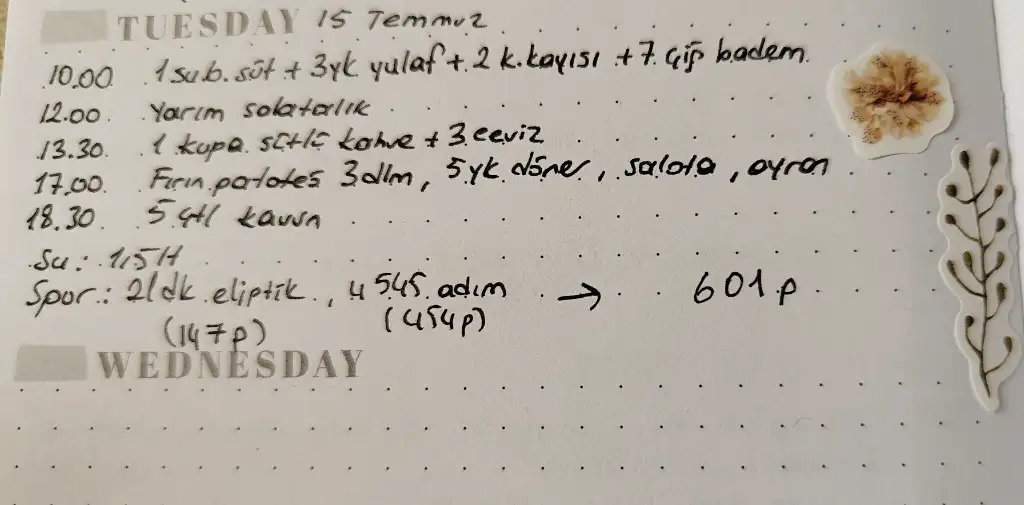 TUESDAY 15 Temmuz
10.00 1 su b. süt + 3yk yulaf + 2 k.kayısı + 7 çiğ badem
12.00 Yarım salatalık
13.30. 1 kupa sütlü kahve + 3 ceviz
17.00. Fırın patates 3dlm, 5yk döner, salata, ayran
18.30. 5 çtl kavun
Su: 1,5 lt
Spor: 21dk eliptik, 4545 adım → 601 p
(147p) (454p)
WEDNESDAY